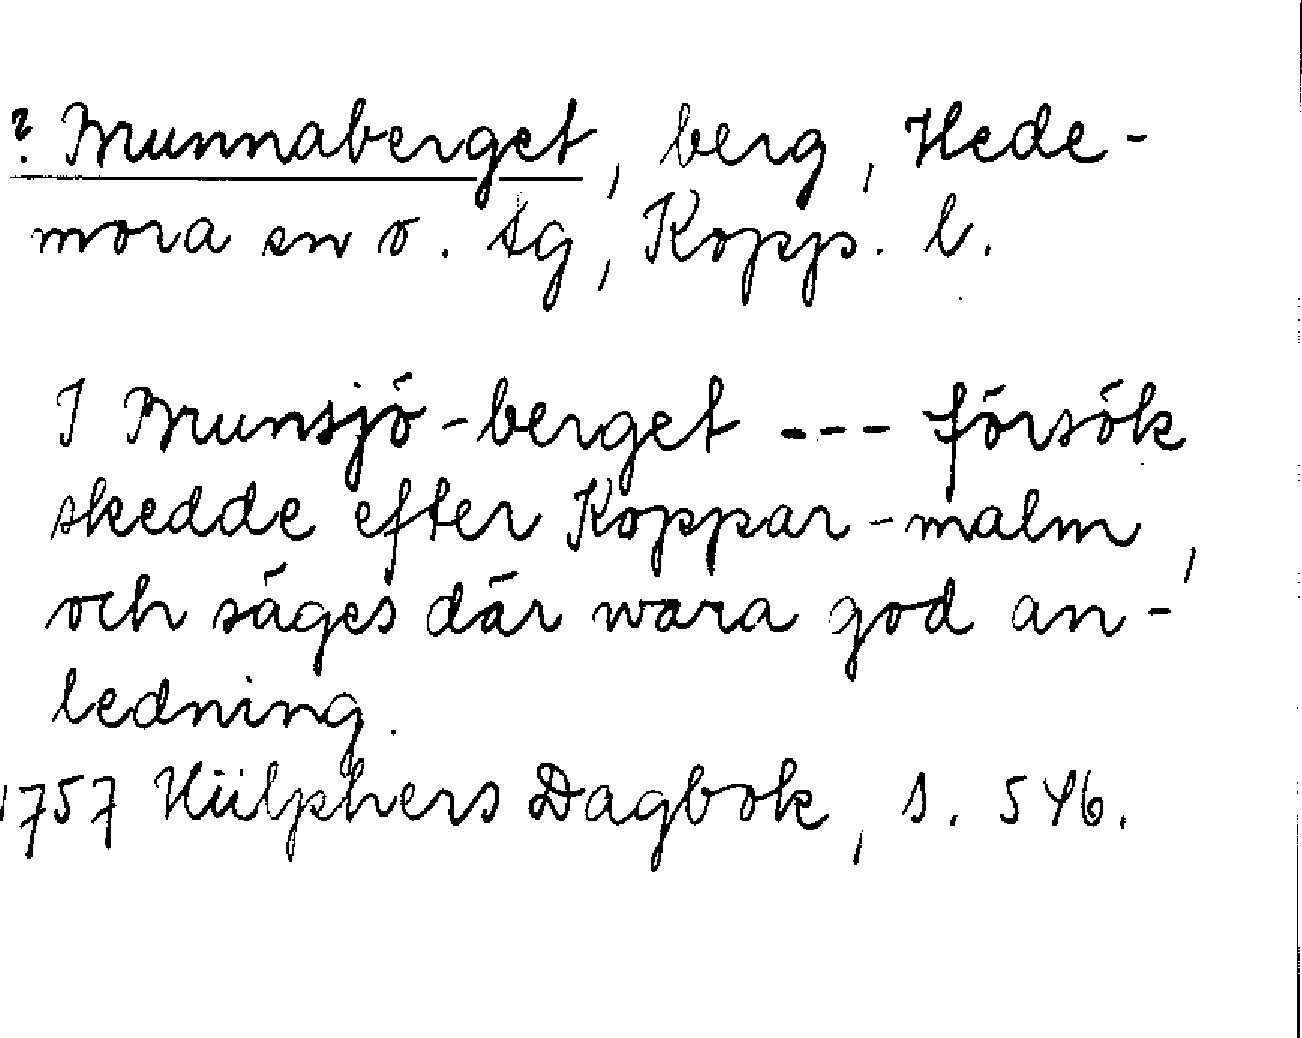 ? Brunnaberget, berg, Hede-
mora sn o. tg, Kopp. l.
I Brunsjö-berget --- försök
skedde efter Koppar-malm,
och säges där wara god an-
ledning.
1757 Hülphers Dagbok, s. 546.